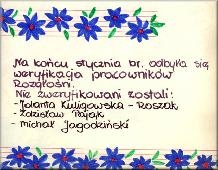 Na końcu stycznia br. odbyła się
weryfikacja pracowników
Rozgłośni.
Nie zweryfikowani zostali:
- Jolanta Kuligowska - Roszak
- Zdzisław Pająk
- Michał Jagodziński